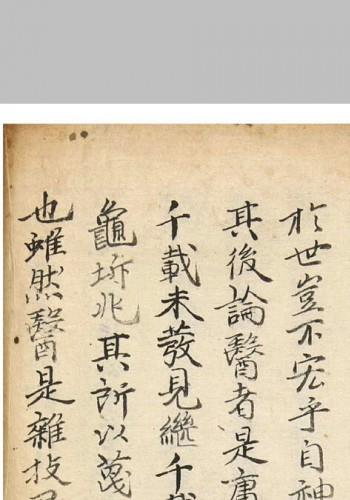 於世豈不宏乎自神
其後論醫者是庸
千載未發見繼千載
龜坼兆其所以蔑
也雖然醫是雜技